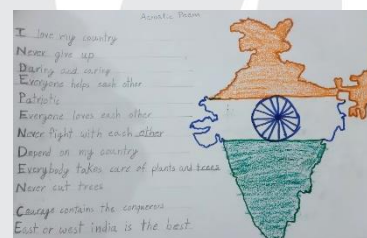 Acrostic Poem
I love my country
Never give up
Daring and caring
Everyone helps each other
Patriotic
Everyone loves each other
Never fight with each other
Depend on my country
Everybody takes care of plants and trees
Never cut trees
Courage contains the conquerors
East or west india is the best